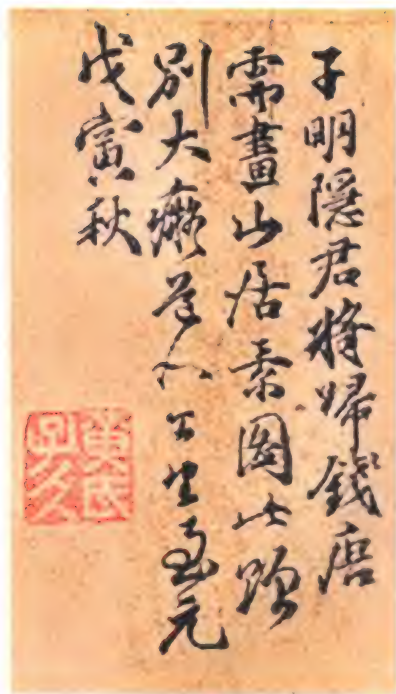 子明隱君將歸錢唐
需畫山居景圖此贈
別大癡道人公望至元
戊寅秋
黃氏
子久